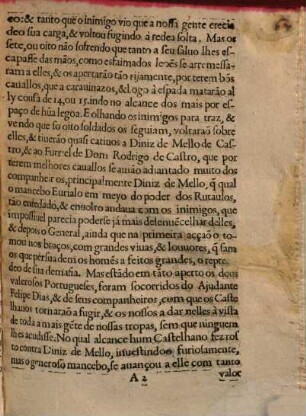 co: & tanto que o inimigo vio que a nossa gente erecia
deo sua carga, & voltou fugindo à redea solta. Mas os
sete, ou oito não sofrendo que tanto a seu saluo lhes es-
capasse das mãos, como esfaimados leoẽs se arremessa-
ram a elles, & os apertarão tão rijamente, por terem bõs
cauallos, que a carauinazos, & logo à espada matarão al
ly cousa de 14, ou 15, indo no alcance dos mais por es-
paço de hũa legoa. E olhando os inimigos para traz, &
vendo que só oito soldados os seguiam, voltarão sobre
elles, & tiuerão quasi catiuos a Diniz de Mello de Cas-
tro, & ao Furriel de Dom Rodrigo de Castro, que por
terem melhores cauallos se auião adiantado muito dos
companheiros, principalmente Diniz de Mello, q̃ qual
o mancebo Eurialo em meyo do poder dos Rutaulos,
tão enredado, & enuolto andaua com os inimigos, que
impossiuel parecia poderse já mais delenuencelhar delles,
& depois o General, ainda que na primeira acção o to-
mou nos braços, com grandes viuas, & louuores, q̃ sam
os que persuadem os homẽs a feitos grandes, o repre-
deo de sua demasia. Mas estãdo em tãto aperto os dous
valerosos Portugueses, foram socorridos do Ajudante
Felipe Dias, & de seus companheiros, com que os Caste
lhanos tornarão a fugir, & os nossos a dar nelles à vista
de toda a mais gẽte de nossas tropas, sem que ninguem
lhes acudisse. No qual alcance hum Castelhano fez ros-
to contra Diniz de Mello, inuestindoo furiosamente,
mas o generoso mancebo, se auançou a elle com tanto
A 2 valor